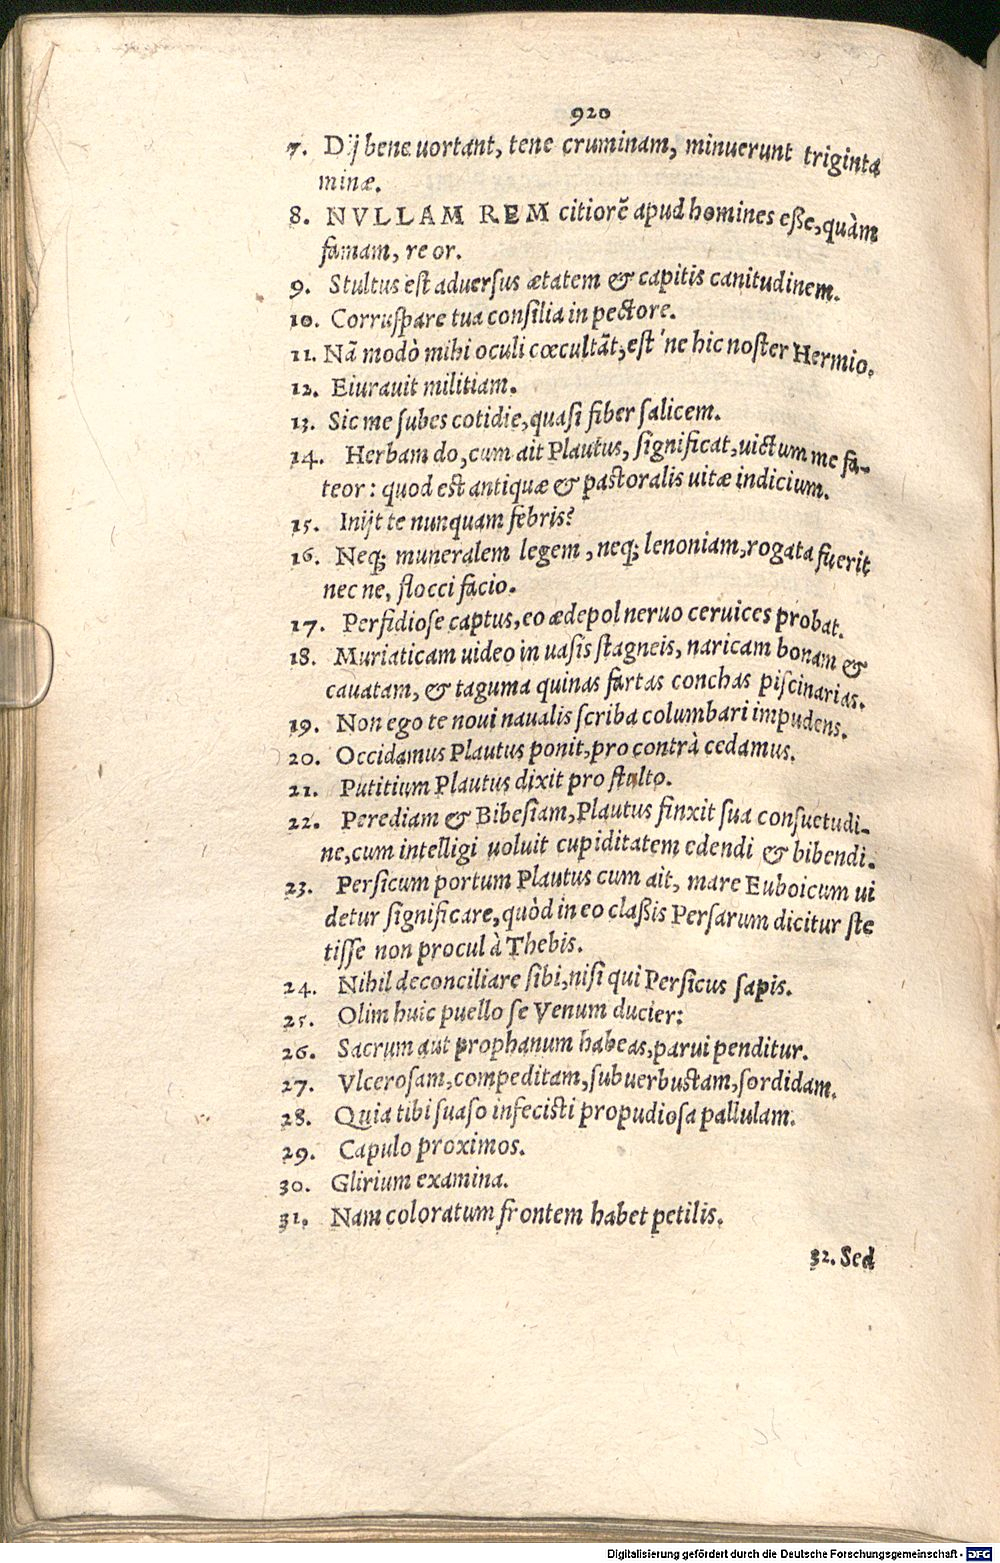 920
7. Dij bene uortant, tene cruminam, minuerunt triginta
minæ.
8. NVLLAM REM citiorẽ apud homines eße, quàm
famam, reor.
9. Stultus est aduersus ætatem & capitis canitudinem.
10. Corruspare tua consilia in pectore.
11. Nã modò mihi oculi cœcultãt, est 'ne hic noster Hermio.
12. Eiurauit militiam.
13. Sic me subes cotidie, quasi fiber salicem.
14. Herbam do, cum ait Plautus, significat, uictum me fa-
teor: quod est antiquæ & pastoralis uitæ indicium.
15. Inijt te nunquam febris?
16. Neq; muneralem legem, neq; lenoniam, rogata fuerit
nec ne, flocci facio.
17. Perfidiose captus, eo ædepol neruo ceruices probat.
18. Muriaticam uideo in uasis stagneis, naricam bonam &
cauatam, & taguma quinas fartas conchas piscinarias.
19. Non ego te noui naualis scriba columbari impudens.
20. Occidamus Plautus ponit, pro contrà cedamus.
21. Putitium Plautus dixit pro stulto.
22. Perediam & Bibesiam, Plautus finxit sua consuetudi-
ne, cum intelligi uoluit cupiditatem edendi & bibendi.
23. Persicum portum Plautus cum ait, mare Euboicum ui
detur significare, quòd in eo claßis Persarum dicitur ste
tisse non procul à Thebis.
24. Nihil deconciliare sibi, nisi qui Persicus sapis.
25. Olim huic puello se Venum ducier:
26. Sacrum aut prophanum habeas, parui penditur.
27. Vlcerosam, compeditam, subuerbustam, sordidam.
28. Quia tibi suaso infecisti propudiosa pallulam.
29. Capulo proximos.
30. Glirium examina.
31. Nam coloratum frontem habet petilis.
32. Sed
Digitalisierung gefördert durch die Deutsche Forschungsgemeinschaft - DFG